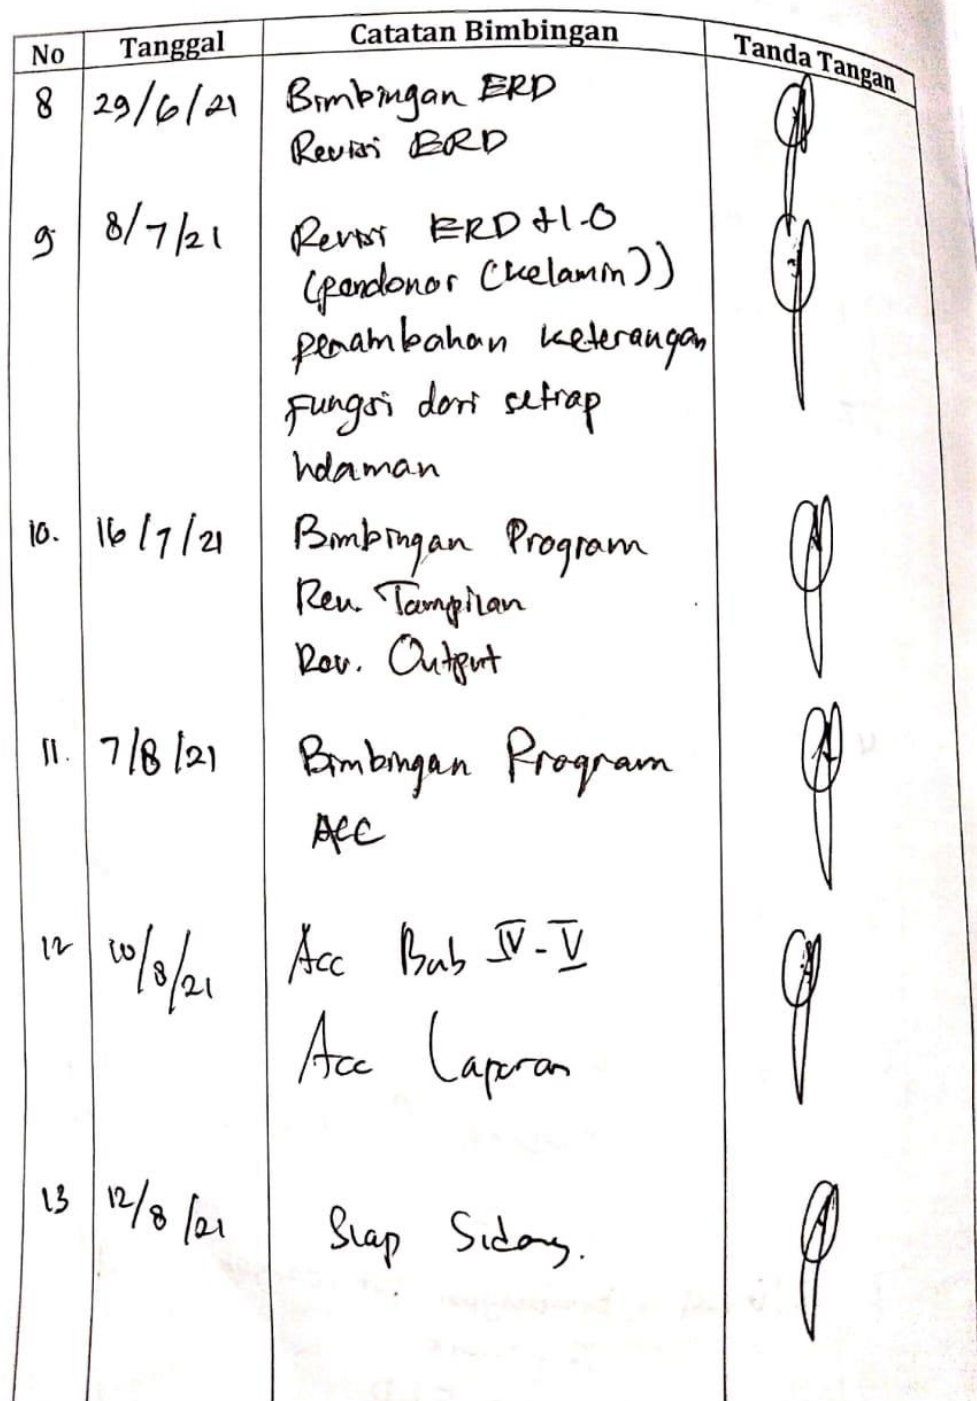 No Tanggal Catatan Bimbingan Tanda Tangan
8 29/6/21 Bimbingan ERD
Revisi ERD
9 8/7/21 Revisi ERD +1-0
(pendonor (kelamin))
penambahan keterangan
Fungsi dari setiap
halaman
10. 16/7/21 Bimbingan Program
Rev. Tampilan
Rev. Output
11. 7/8/21 Bimbingan Program
ACC
12 10/8/21 Acc Bab IV-V
Acc Laporan
13 12/8/21 Siap Sidang.